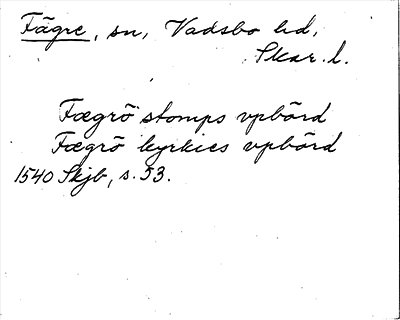 Fägre, sn, Vadsbo hd,
Skar. l.
Fægrö stomps vpbörd
Fægrö kyrkies vpbörd
1540 Skjb, s. 53.